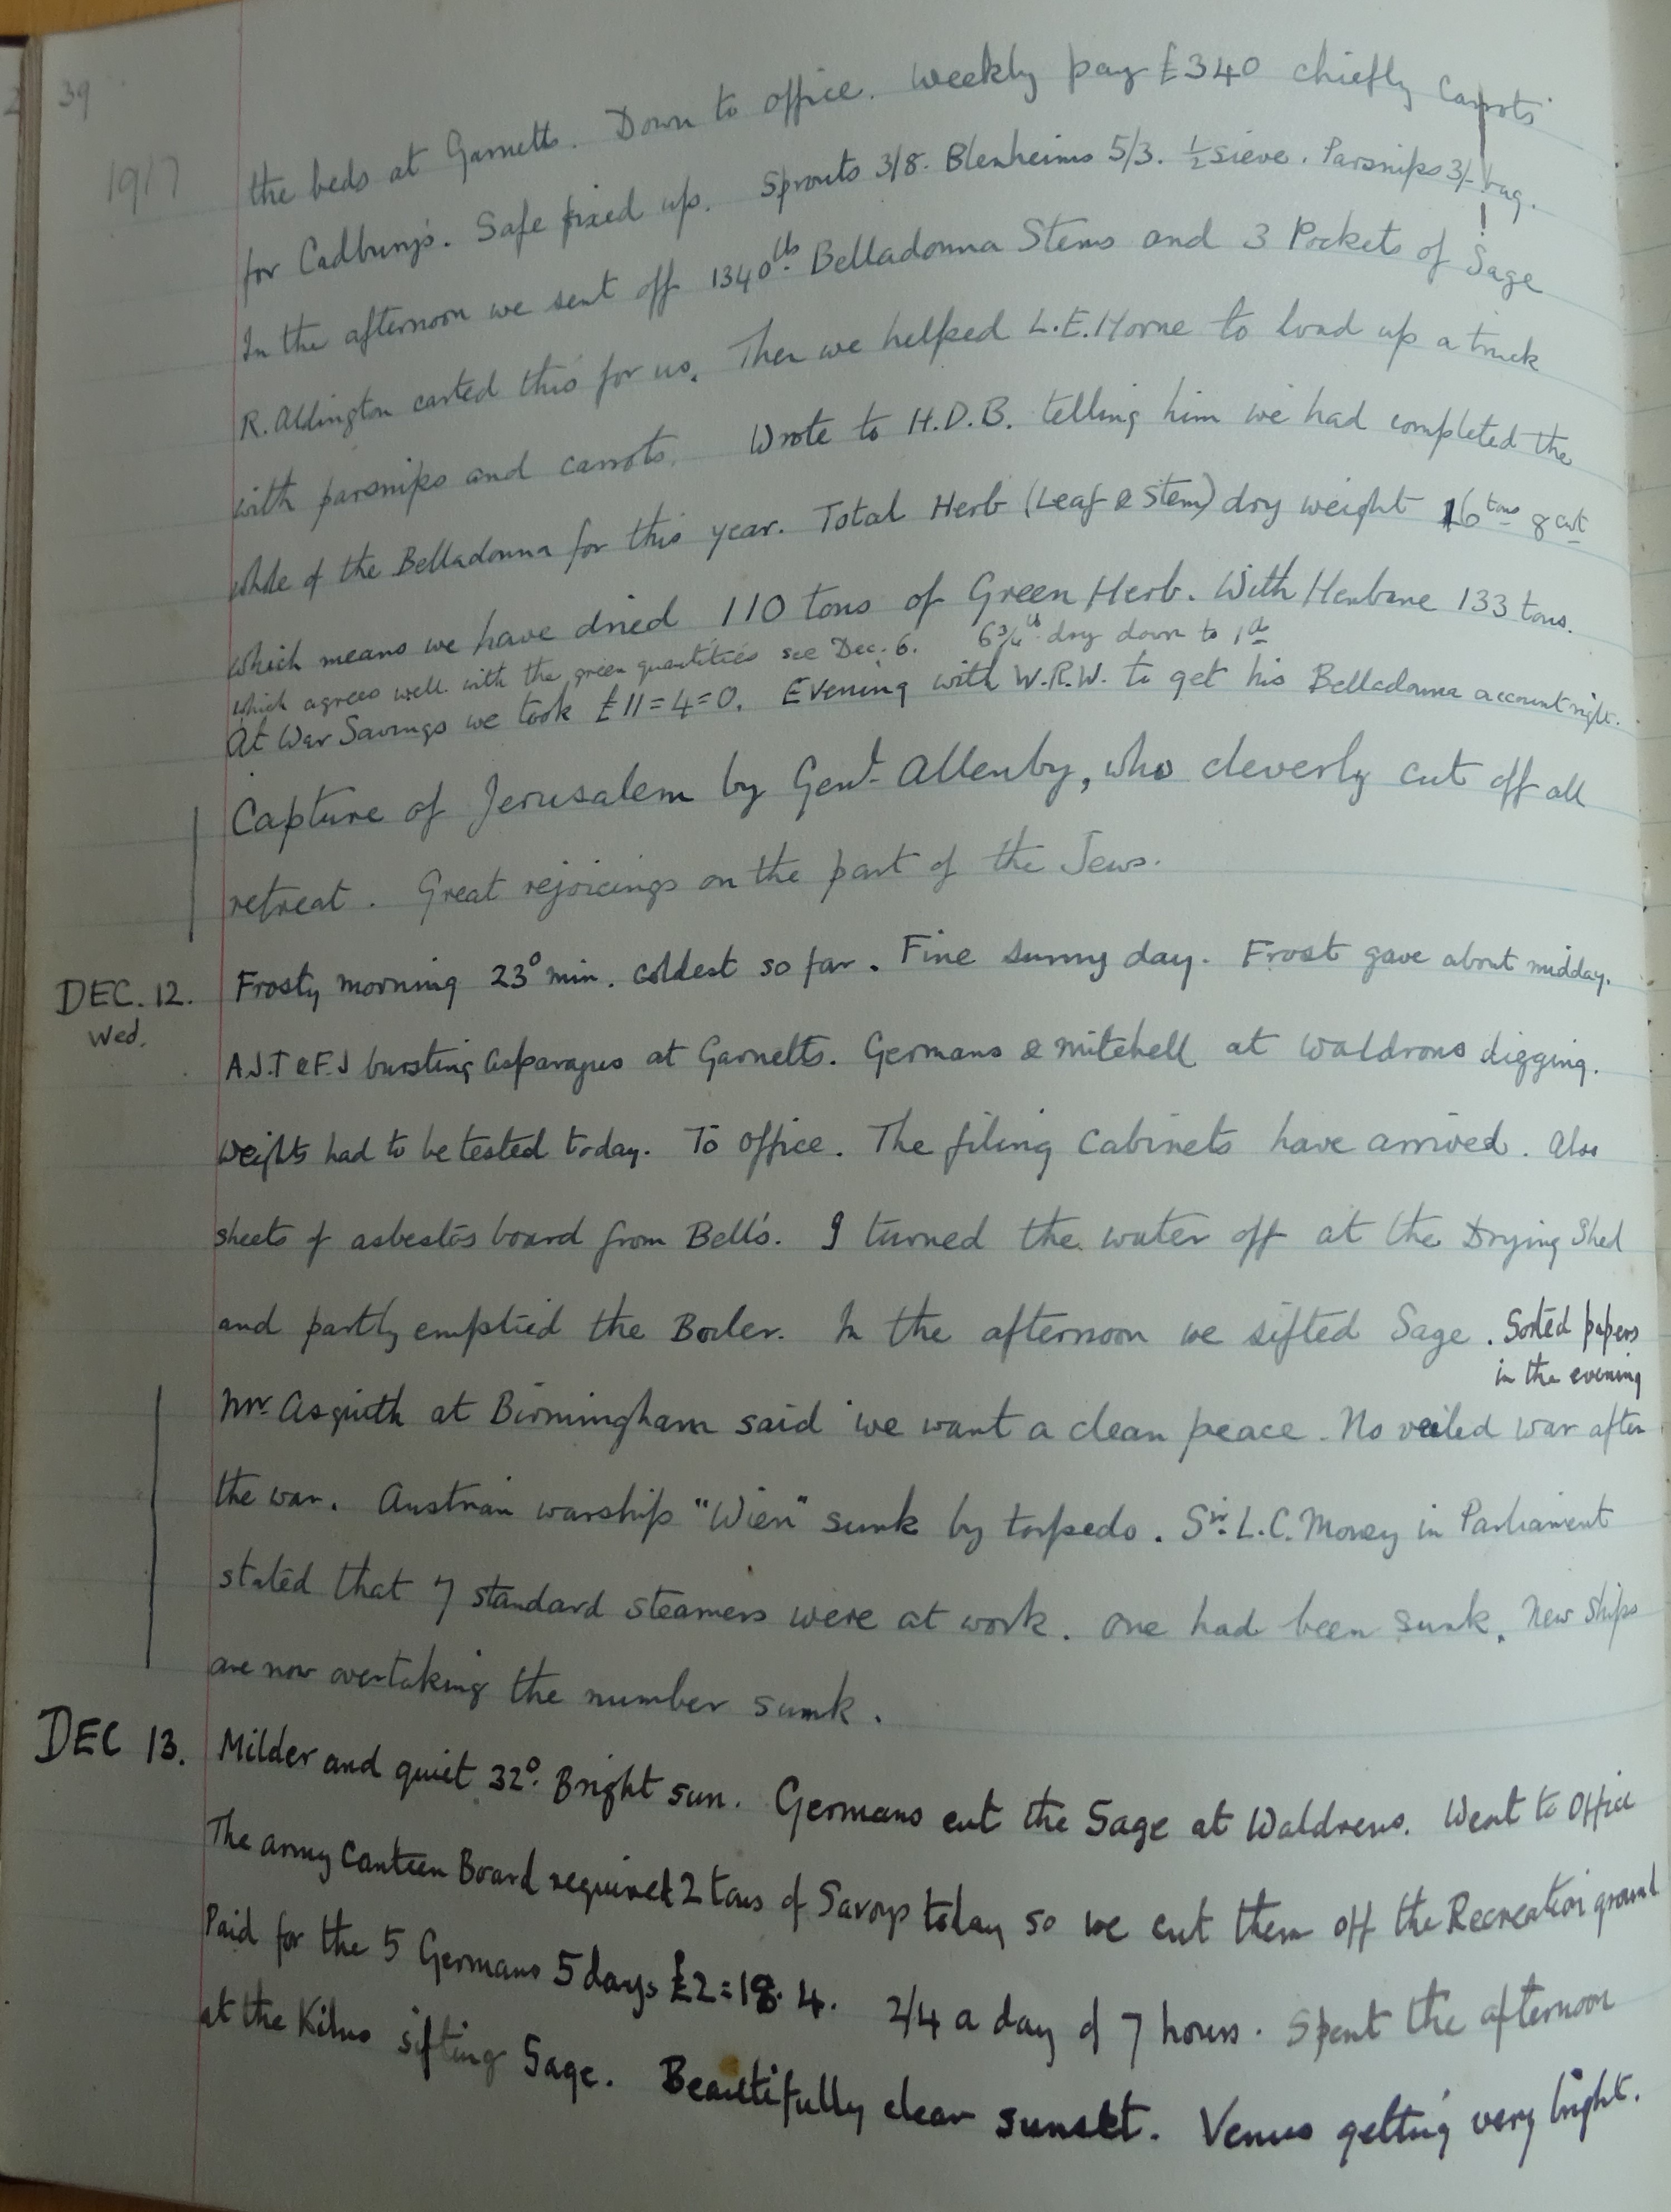 39
1917
the beds at Garnetts. Down to office. Weekly pay £340 chiefly Carrots
for Cadbury's. Safe fixed up. Sprouts 3/8. Blenheims 5/3. ½ sieve. Parsnips 3/- bag.
In the afternoon we sent off 1340 lbs. Belladonna Stems and 3 Pockets of Sage
R. Aldington carted this for us. Then we helped L.E. Horne to load up a truck
with parsnips and carrots. Wrote to H.D.B. telling him we had completed the
whole of the Belladonna for this year. Total Herb (Leaf & Stem) dry weight 16 tons 8 cwt
which means we have dried 110 tons of Green Herb. With Henbane 133 tons.
which agrees well with the green quantities see Dec. 6. 6¾ lb. dry down to 1 lb
At War Savings we took £11=4=0. Evening with W.R.W. to get his Belladonna account right.
Capture of Jerusalem by Genl. Allenby, who cleverly cut off all
retreat. Great rejoicings on the part of the Jews.
DEC. 12. Frosty morning 23° min. coldest so far. Fine sunny day. Frost gave about midday.
Wed.
A.J.T & F.J bursting Asparagus at Garnetts. Germans & Mitchell at Waldrons digging.
Weights had to be tested today. To Office. The filing Cabinets have arrived. Also
sheets of asbestos board from Bell's. I turned the water off at the Drying Shed
and partly emptied the Boiler. In the afternoon we sifted Sage. Sorted papers
in the evening
Mr. Asquith at Birmingham said 'we want a clean peace. No veiled war after
the war. Austrian warship "Wien" sunk by torpedo. Sir. L.C. Money in Parliament
stated that 7 standard steamers were at work. One had been sunk. New Ships
are now overtaking the number sunk.
DEC 13. Milder and quiet 32°. Bright sun. Germans cut the Sage at Waldrons. Went to Office
The Army Canteen Board required 2 tons of Savoys today so we cut them off the Recreation ground
Paid for the 5 Germans 5 days £2=18.4. 2/4 a day of 7 hours. Spent the afternoon
at the Kilns sifting Sage. Beautifully clear sunset. Venus getting very bright.